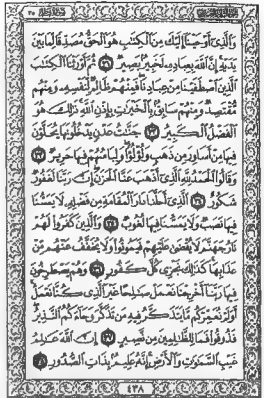 وَالَّذِي أَوْحَيْنَا إِلَيْكَ مِنَ الْكِتَٰبِ هُوَ الْحَقُّ مُصَدِّقًا لِّمَا بَيْنَ
يَدَيْهِ إِنَّ اللَّهَ بِعِبَادِهِ لَخَبِيرٌ بَصِيرٌ ﴿٣١﴾ ثُمَّ أَوْرَثْنَا الْكِتَٰبَ
الَّذِينَ اصْطَفَيْنَا مِنْ عِبَادِنَا فَمِنْهُمْ ظَالِمٌ لِّنَفْسِهِ وَمِنْهُم
مُّقْتَصِدٌ وَمِنْهُمْ سَابِقٌ بِالْخَيْرَٰتِ بِإِذْنِ اللَّهِ ذَٰلِكَ هُوَ
الْفَضْلُ الْكَبِيرُ ﴿٣٢﴾ جَنَّٰتُ عَدْنٍ يَدْخُلُونَهَا يُحَلَّوْنَ
فِيهَا مِنْ أَسَاوِرَ مِن ذَهَبٍ وَلُؤْلُؤًا وَلِبَاسُهُمْ فِيهَا حَرِيرٌ ﴿٣٣﴾
وَقَالُوا الْحَمْدُ لِلَّهِ الَّذِي أَذْهَبَ عَنَّا الْحَزَنَ إِنَّ رَبَّنَا لَغَفُورٌ
شَكُورٌ ﴿٣٤﴾ الَّذِي أَحَلَّنَا دَارَ الْمُقَامَةِ مِن فَضْلِهِ لَا يَمَسُّنَا
فِيهَا نَصَبٌ وَلَا يَمَسُّنَا فِيهَا لُغُوبٌ ﴿٣٥﴾ وَالَّذِينَ كَفَرُوا لَهُمْ
نَارُ جَهَنَّمَ لَا يُقْضَىٰ عَلَيْهِمْ فَيَمُوتُوا وَلَا يُخَفَّفُ عَنْهُم مِّنْ
عَذَابِهَا كَذَٰلِكَ نَجْزِي كُلَّ كَفُورٍ ﴿٣٦﴾ وَهُمْ يَصْطَرِخُونَ
فِيهَا رَبَّنَا أَخْرِجْنَا نَعْمَلْ صَٰلِحًا غَيْرَ الَّذِي كُنَّا نَعْمَلُ
أَوَلَمْ نُعَمِّرْكُم مَّا يَتَذَكَّرُ فِيهِ مَن تَذَكَّرَ وَجَاءَكُمُ النَّذِيرُ
فَذُوقُوا فَمَا لِلظَّٰلِمِينَ مِن نَّصِيرٍ ﴿٣٧﴾ إِنَّ اللَّهَ عَٰلِمُ
غَيْبِ السَّمَٰوَٰتِ وَالْأَرْضِ إِنَّهُ عَلِيمٌ بِذَاتِ الصُّدُورِ ﴿٣٨﴾
٤٣٨